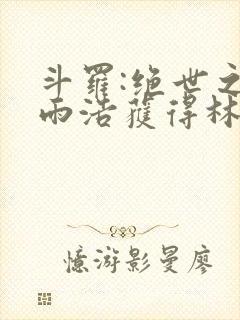 斗羅:绝世之
雨浩獲得林
憶游影曼廖